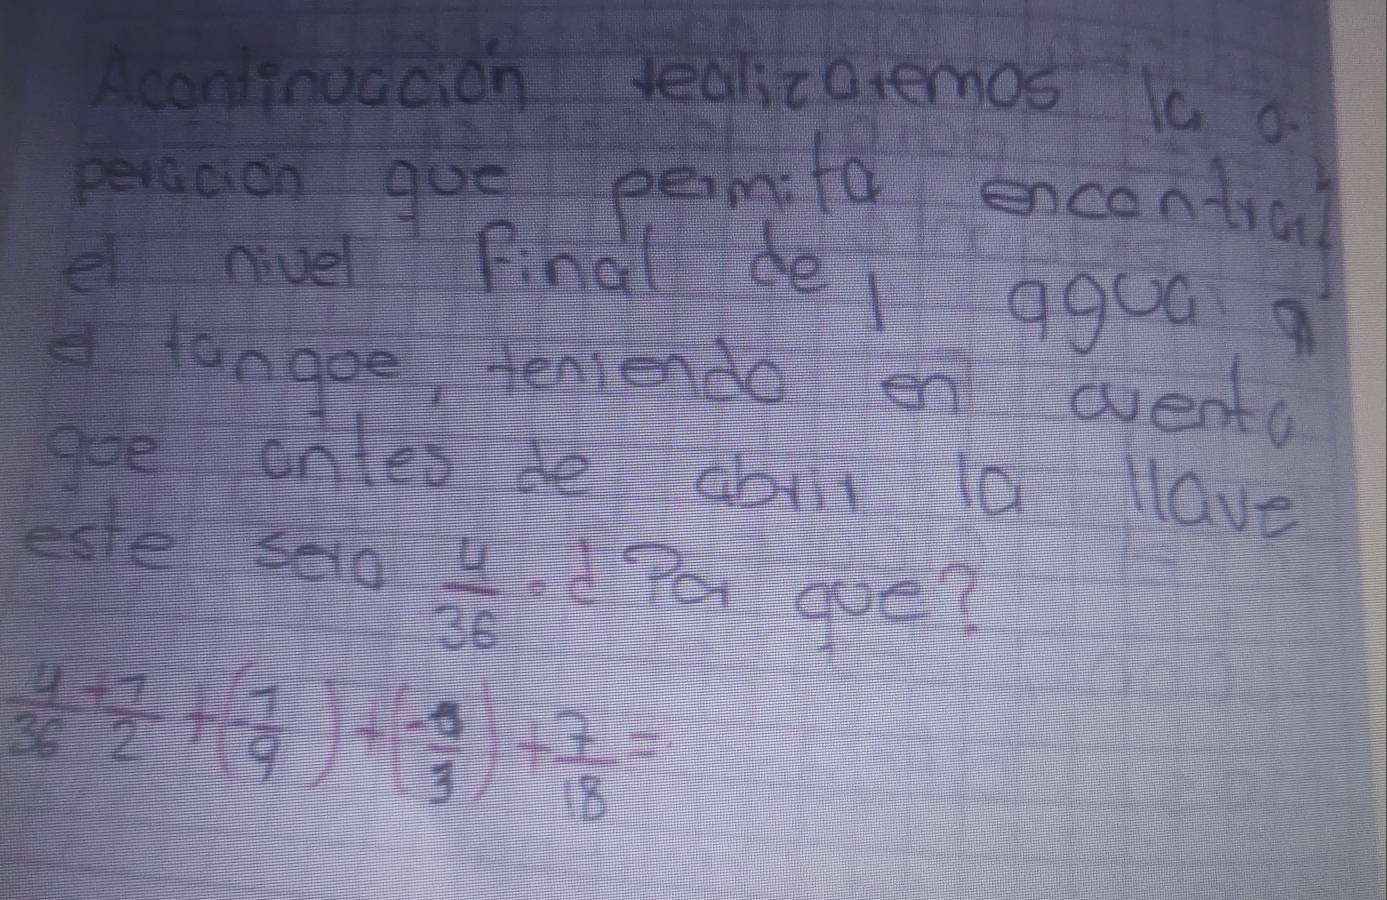 Acontinuación realizaremos la o-
peracion que permita encontrar
el nivel final de l agua
tanque, teniendo en cuenta
que antes de abrir la llave
este sera 4/36. ¿Por que?
4/36 + 1/2 + (-1/9) + ( /3) + 7/18 =